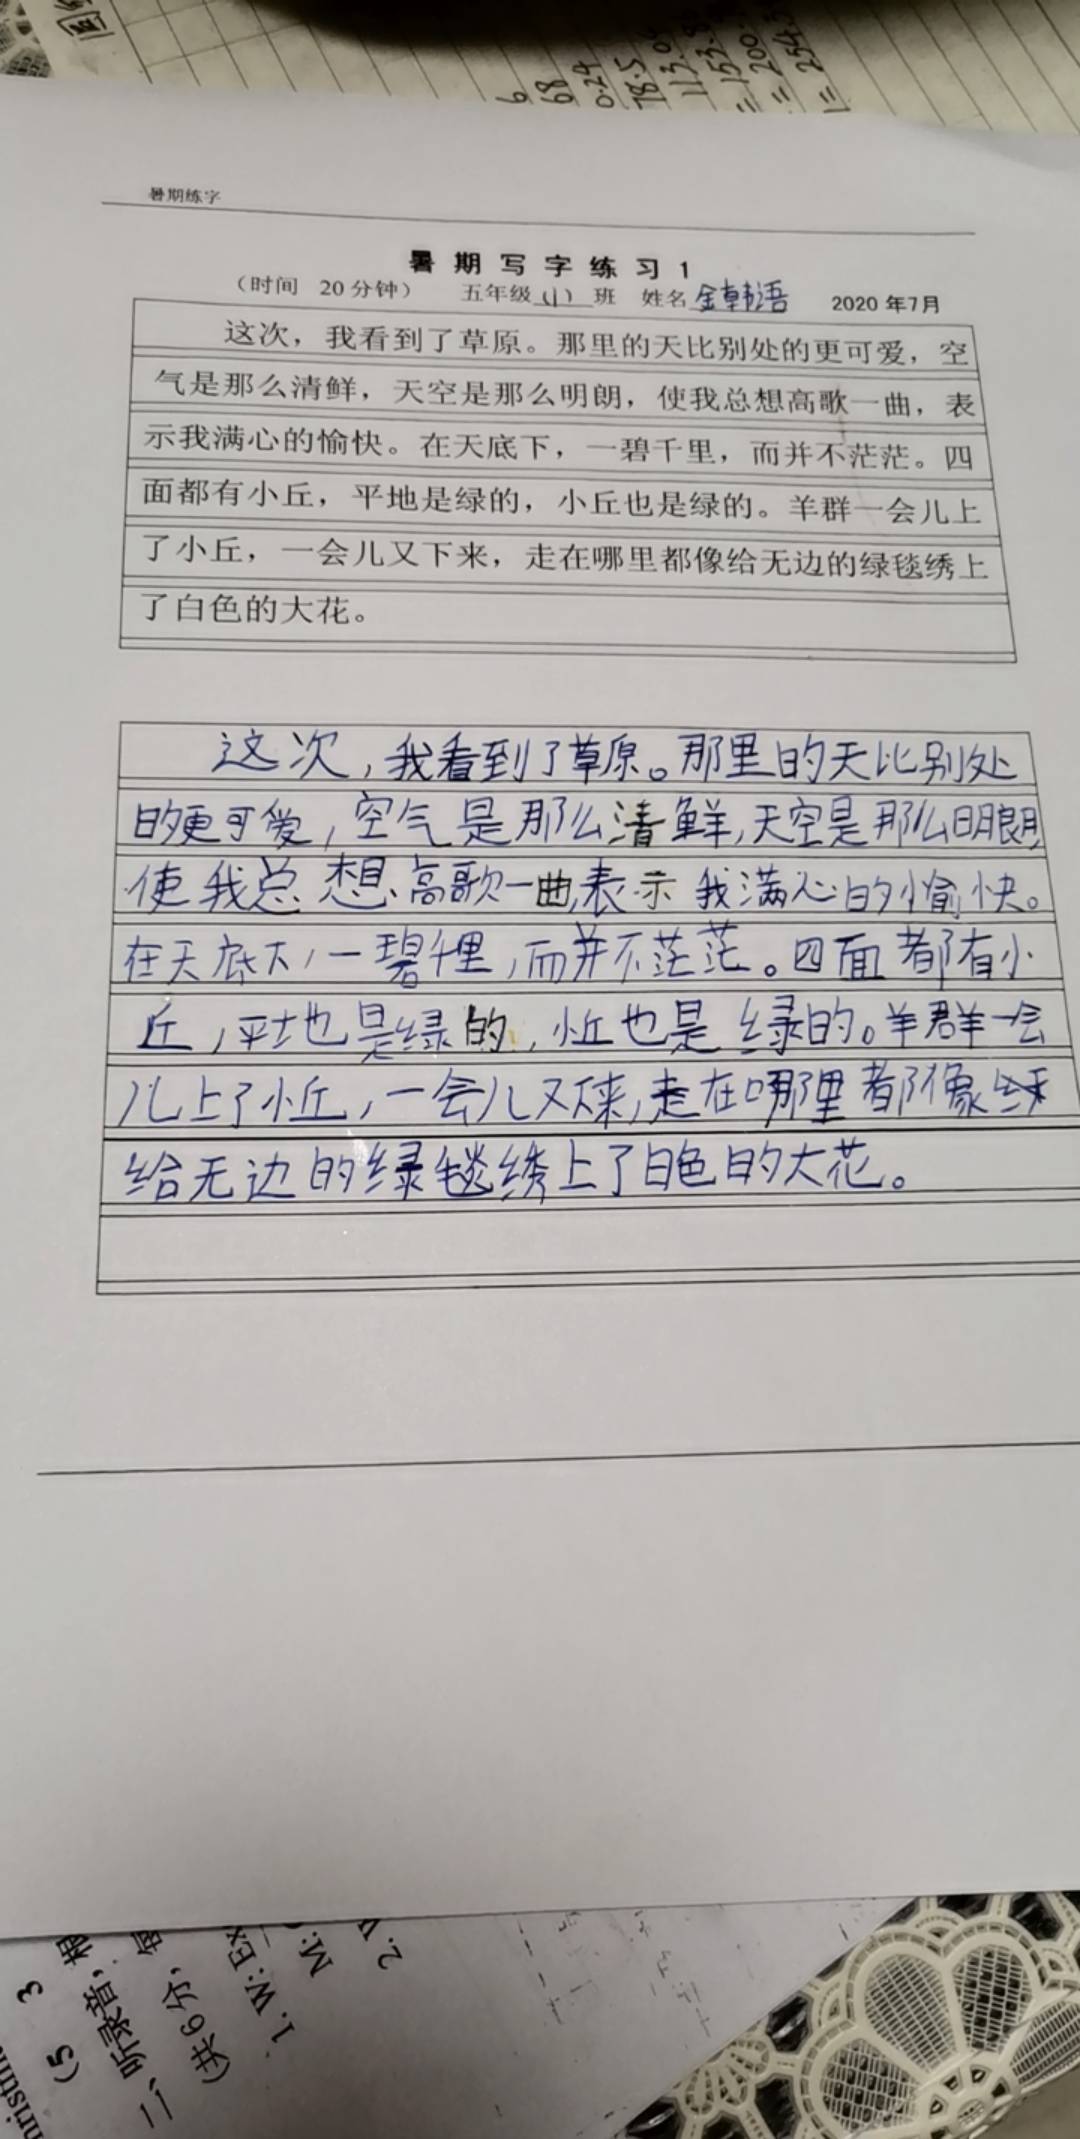 6
68
0.24
78.5
113.04
暑期练字
暑期写字练习1
（时间 20分钟） 五年级(1)班 姓名金韩语 2020年7月
这次，我看到了草原。那里的天比别处的更可爱，空
气是那么清鲜，天空是那么明朗，使我总想高歌一曲，表
示我满心的愉快。在天底下，一碧千里，而并不茫茫。四
面都有小丘，平地是绿的，小丘也是绿的。羊群一会儿上
了小丘，一会儿又下来，走在哪里都像给无边的绿毯绣上
了白色的大花。
这次，我看到了草原。那里的天比别处
的更可爱，空气是那么清鲜，天空是那么明朗，
使我总想高歌一曲，表示我满心的愉快。
在天底下，一碧千里，而并不茫茫。四面都有小
丘，平地也是绿的，小丘也是绿的。羊群一会
儿上了小丘，一会儿又下来，走在哪里都像
给无边的绿毯绣上了白色的大花。
(5
3
二、听录音，根
(共6分，每
1. W: Ex
M:
2.